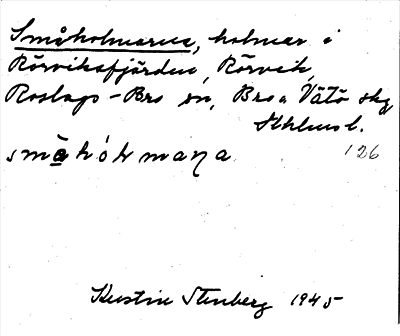 Småholmarna, holmar i
Rörviksfjärden, Rörvik,
Roslags-Bro sn, Bro o. Vätö skg
Sthlms l.
126
Kerstin Stenberg 1945